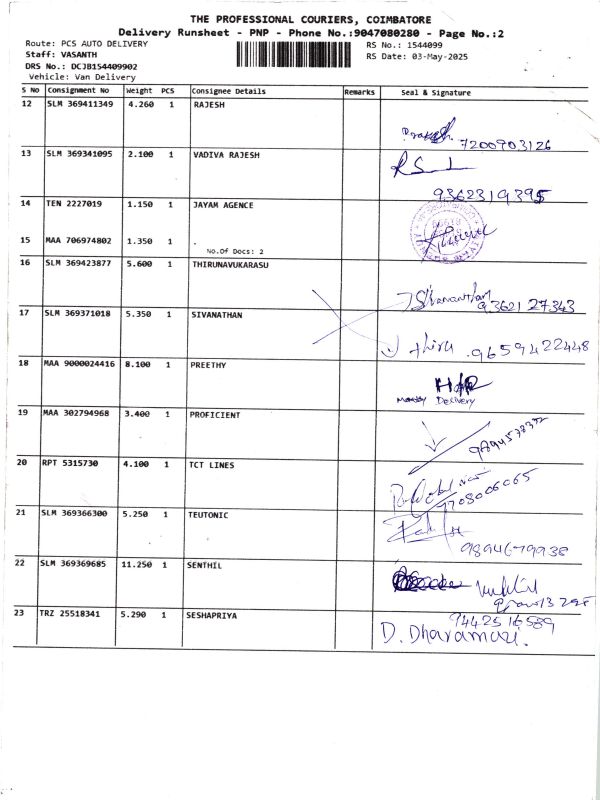 THE PROFESSIONAL COURIERS, COIMBATORE
Delivery Runsheet - PNP - Phone No.:9047080280 - Page No.:2
Route: PCS AUTO DELIVERY
RS No.: 1544099
Staff: VASANTH
RS Date: 03-May-2025
DRS No.: DCJB154409902
Vehicle: Van Delivery
S No Consignment No Weight PCS Consignee Details Remarks Seal & Signature
12 SLM 369411349 4.260 1 RAJESH
7200903126
13 SLM 369341095 2.100 1 VADIVA RAJESH
9362319395
14 TEN 2227019 1.150 1 JAYAM AGENCE
15 MAA 706974802 1.350 1
No.Of Docs: 2
16 SLM 369423877 5.600 1 THIRUNAVUKARASU
93621 27343
17 SLM 369371018 5.350 1 SIVANATHAN
thiru 9659422448
18 MAA 9000024416 8.100 1 PREETHY
Monday Delivery
19 MAA 302794968 3.400 1 PROFICIENT
20 RPT 5315730 4.100 1 TCT LINES
9708006065
21 SLM 369366300 5.250 1 TEUTONIC
9894679938
22 SLM 369369685 11.250 1 SENTHIL
23 TRZ 25518341 5.290 1 SESHAPRIYA
9442516589